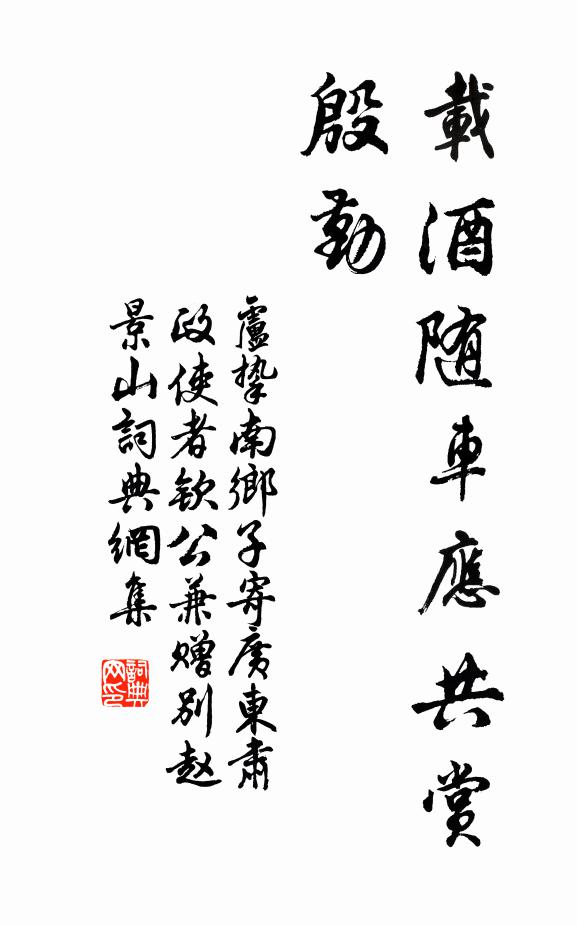 載酒随車應共賞
殷勤
盧摯南鄉子寄廣東肅
政使者欽公兼贈別赵
景山詞典網集
詞典网印